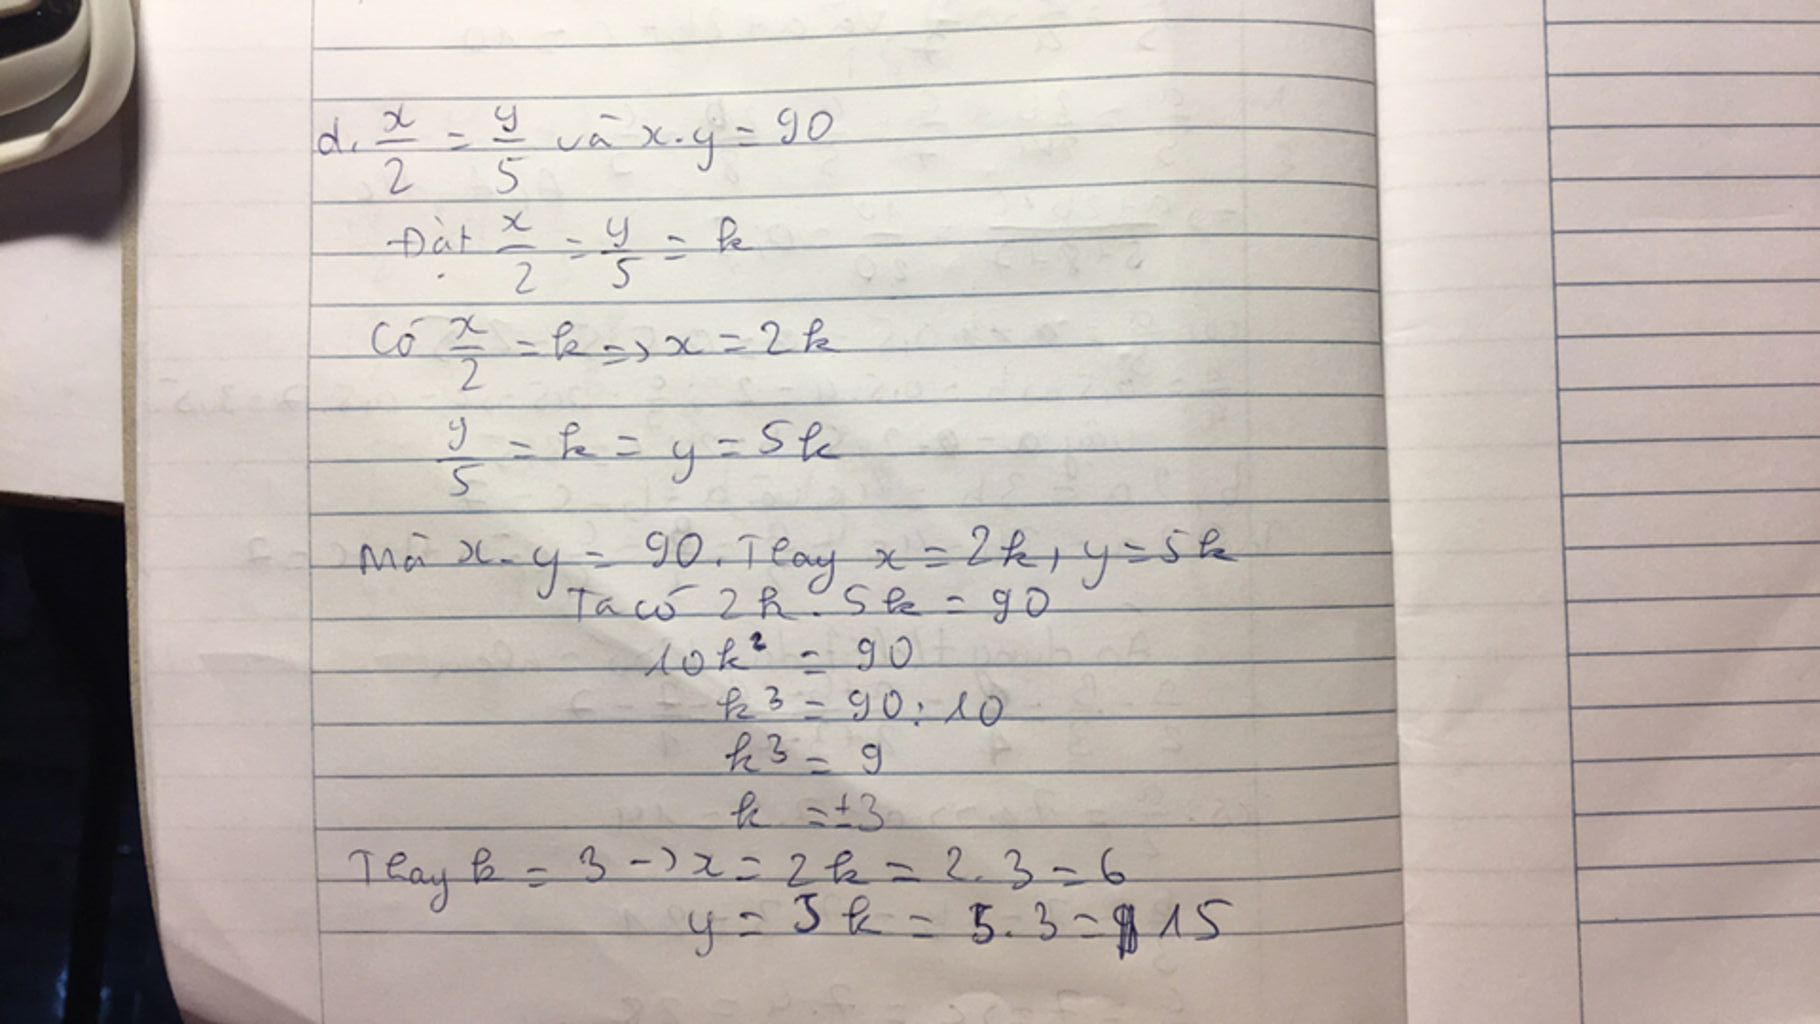 d. x/2 = y/5 và x.y = 90
Đặt x/2 = y/5 = k
Có x/2 = k => x = 2k
y/5 = k = y = 5k
Mà x.y = 90. Thay x = 2k, y = 5k
Ta có 2k . 5k = 90
10k² = 90
k³ = 90 : 10
k³ = 9
k = ±3
Thay k = 3 -> x = 2k = 2.3 = 6
y = 5k = 5.3 = 15